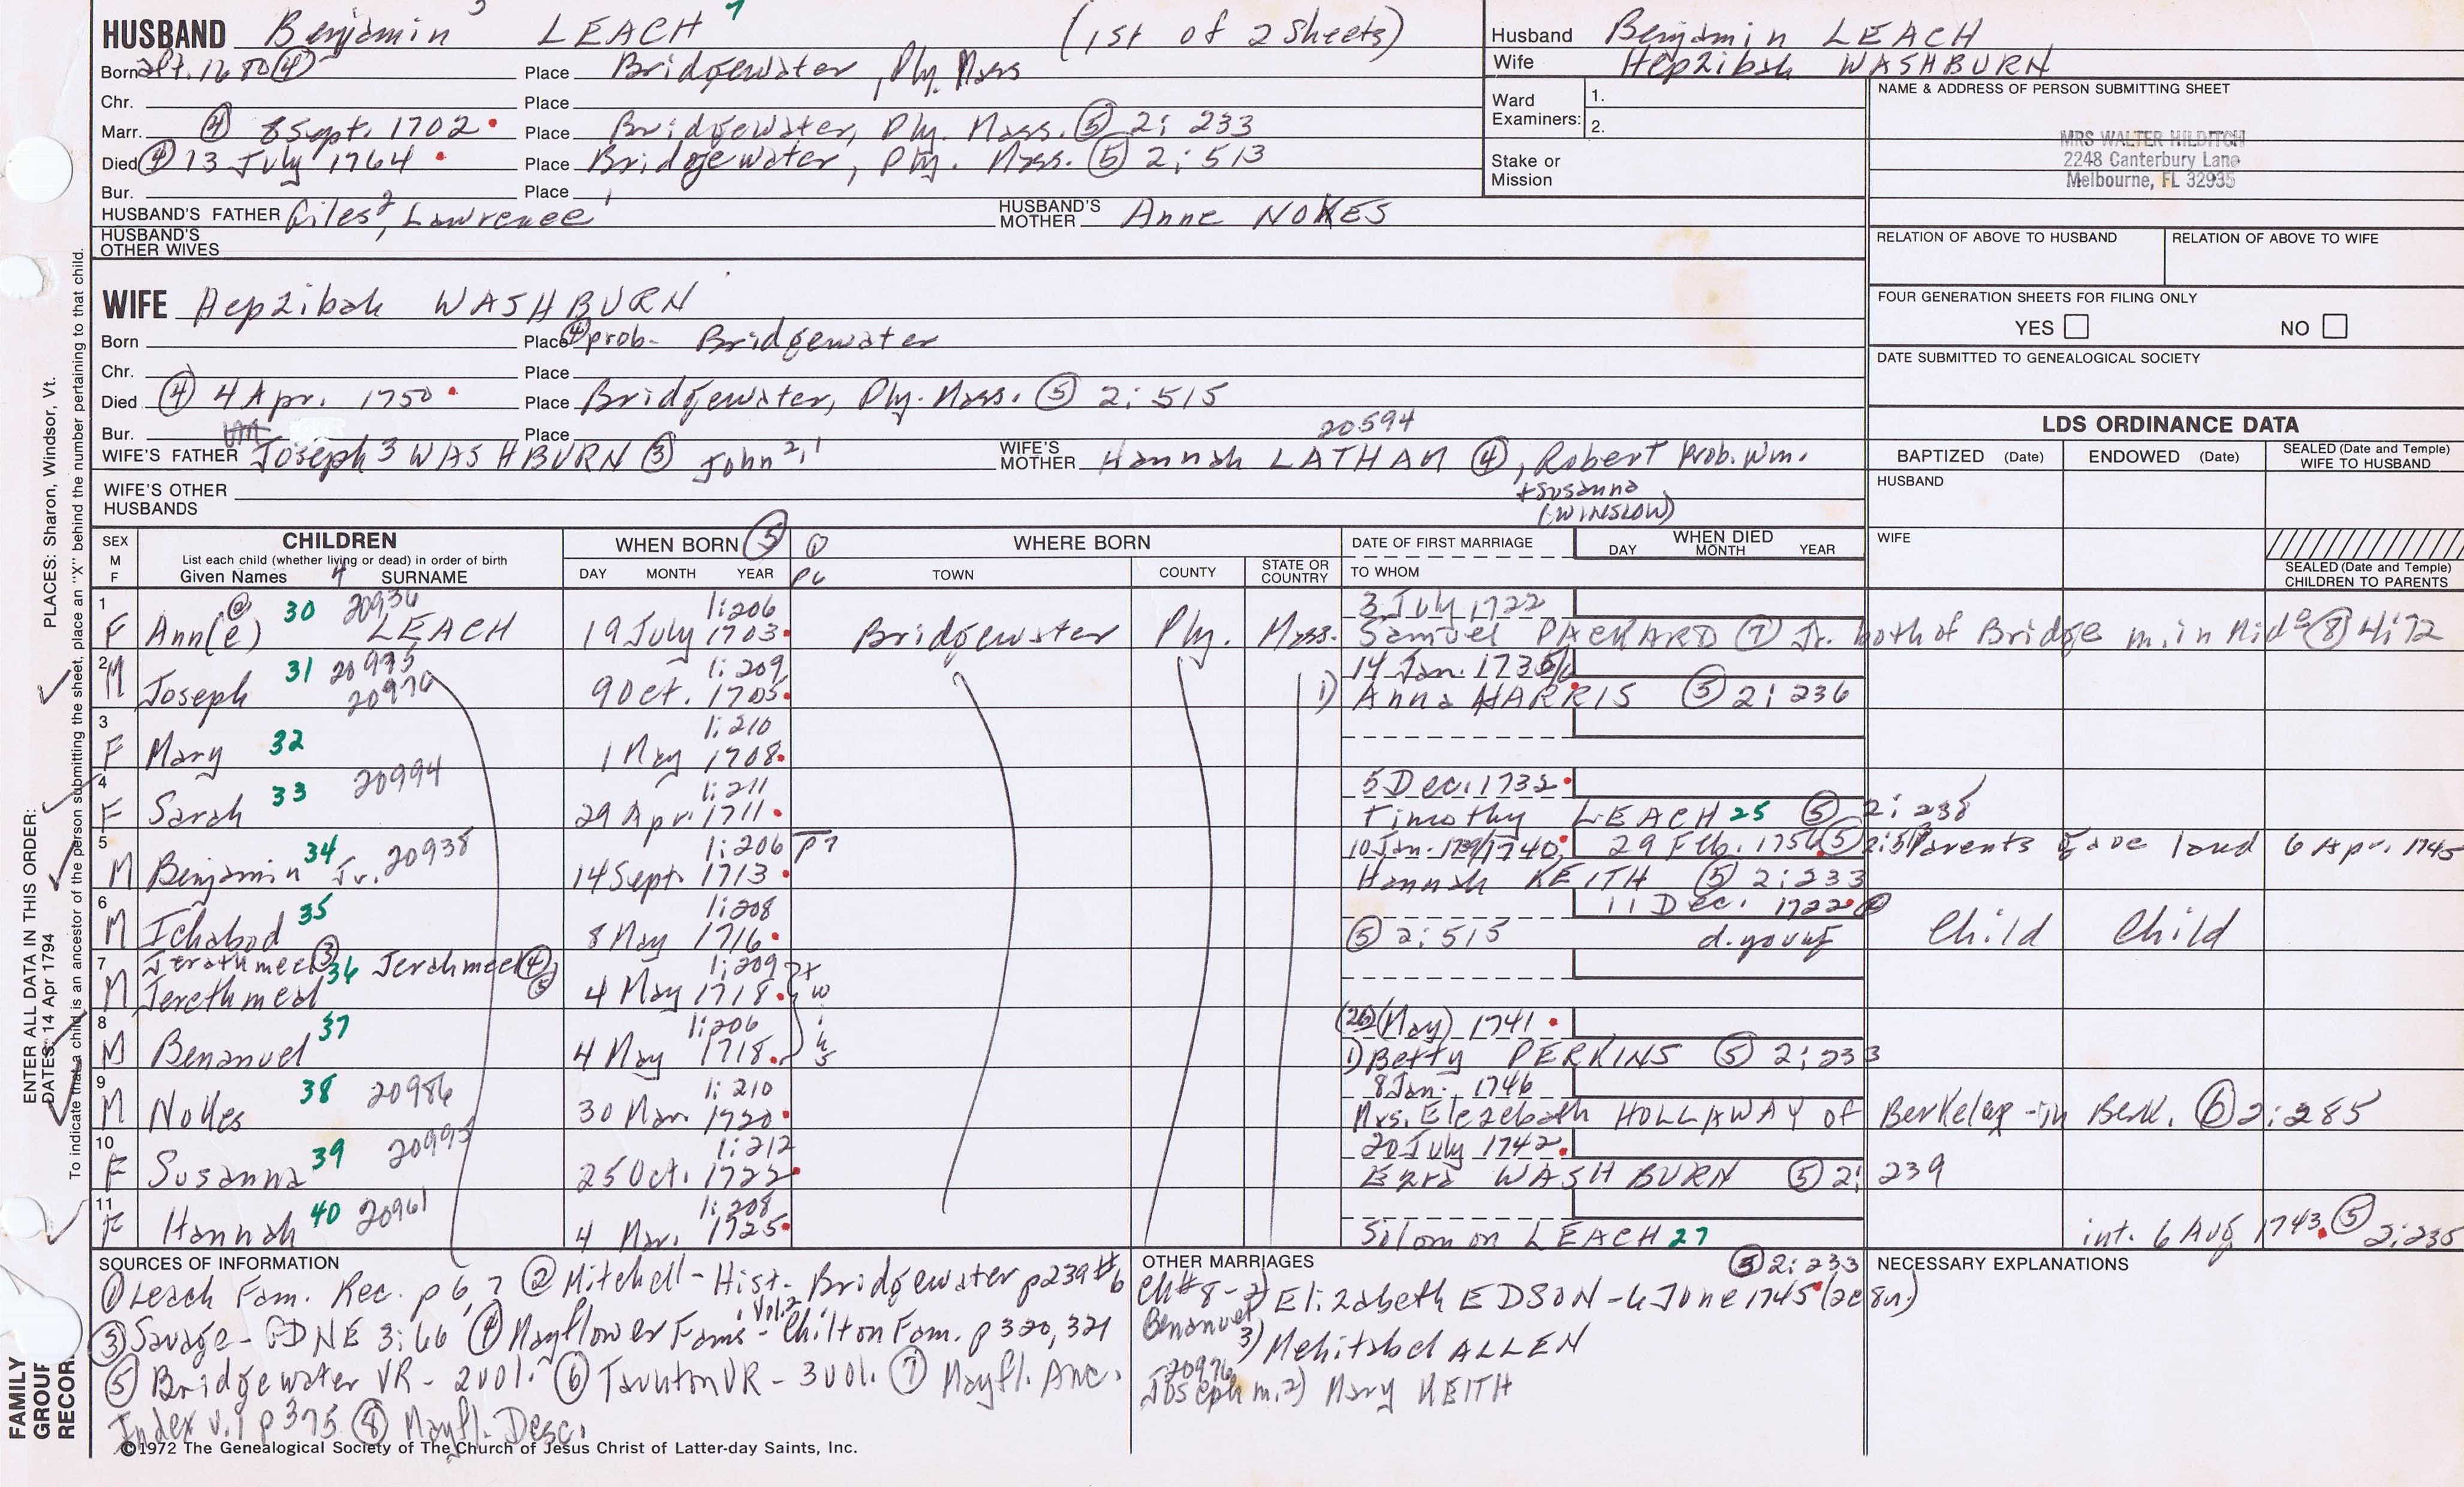 HUSBAND Benjamin 3 LEACH 7 (1st of 2 Sheets)
Born aft. 1680 (4) Place Bridgewater, Ply. Mass
Chr. Place
Marr. (4) 8 Sept. 1702 Place Bridgewater, Ply. Mass. (5) 2: 233
Died (4) 13 July 1764 Place Bridgewater, Ply. Mass. (5) 2: 513
Bur. Place
HUSBAND'S FATHER Giles 2, Lawrence 1 HUSBAND'S MOTHER Anne NOKES
HUSBAND'S OTHER WIVES
Husband Benjamin LEACH
Wife Hepzibah WASHBURN
Ward Examiners: 1.
2.
Stake or Mission
NAME & ADDRESS OF PERSON SUBMITTING SHEET
MRS WALTER HILDITCH
2248 Canterbury Lane
Melbourne, FL 32935
RELATION OF ABOVE TO HUSBAND RELATION OF ABOVE TO WIFE
FOUR GENERATION SHEETS FOR FILING ONLY
YES NO
DATE SUBMITTED TO GENEALOGICAL SOCIETY
WIFE Hepzibah WASHBURN
Born Place (4) prob- Bridgewater
Chr. Place
Died (4) 4 Apr. 1750 Place Bridgewater, Ply. Mass. (5) 2: 515
Bur. Place
20594
WIFE'S FATHER Joseph 3 WASHBURN (3) John 2, 1 WIFE'S MOTHER Hannah LATHAM (4), Robert Prob. Wm.
+ Susanna
(WINSLOW)
WIFE'S OTHER HUSBANDS
LDS ORDINANCE DATA
BAPTIZED (Date) ENDOWED (Date) SEALED (Date and Temple) WIFE TO HUSBAND
HUSBAND
WIFE
SEALED (Date and Temple) CHILDREN TO PARENTS
SEX M F CHILDREN
List each child (whether living or dead) in order of birth
Given Names 4 SURNAME
WHEN BORN (5) DAY MONTH YEAR
(1) PG
WHERE BORN TOWN COUNTY STATE OR COUNTRY
DATE OF FIRST MARRIAGE TO WHOM
WHEN DIED DAY MONTH YEAR
1 (2) 30 20936 1:206 3 July 1722
F Ann(e) LEACH 19 July 1703 Bridgewater Ply. Mass. Samuel PACKARD (7) Jr. both of Bridge m. in Mid (8) 4:72
2 M 31 20975 1:209 14 Jan. 1735/6
Joseph 20970 9 Oct. 1705 1) Anna HARRIS (5) 2: 236
3 32 1:210
F Mary 1 May 1708
4 33 20994 1:211 5 Dec. 1732
F Sarah 29 Apr. 1711 Timothy LEACH 25 (5) 2: 238
5 34 20938 1:206 P7 10 Jan. 1739/1740 29 Feb. 1756 (5) Parents gave land 6 Apr. 1745
M Benjamin Jr. 14 Sept. 1713 Hannah KEITH (5) 2:233
6 35 1:208 11 Dec. 1722
M Ichabod 8 May 1716 (5) 2:515 d. young Child Child
7 Jerathmeel (3) 36 Jerahmeel (4) (5) 1:209
M Jerethmeal 4 May 1718 twins
8 37 1:206 (26) (May) 1741
M Benanuel 4 May 1718 1) Betty PERKINS (5) 2:233
9 38 20986 1:210 8 Jan. 1746
M Nokes 30 Mar. 1720 Mrs. Elezebath HOLLAWAY of Berkeley - in Berk. (6) 2:285
10 39 20995 1:212 20 July 1742
F Susanna 25 Oct. 1722 Ezra WASHBURN (5) 2: 239
11 40 20961 1:208
F Hannah 4 Mar. 1725 Solomon LEACH 27 int. 6 Aug 1743 (5) 2:235
SOURCES OF INFORMATION
(1) Leach Fam. Rec. p 6, 7 (2) Mitchell - Hist. Bridgewater p 239 #6
(3) Savage - GDNE 3:66 (4) Mayflower Fams Vol. 2 - Chilton Fam. p 320, 321
(5) Bridgewater VR - 2 vol. (6) Taunton VR - 3 vol. (7) Mayfl. Anc.
Index v. 1 p 375 (8) Mayfl. Desc.
OTHER MARRIAGES (5) 2:233
Ch # 8 - 2) Elizabeth EDSON - 6 June 1745
Benanuel 3) Mehitabel ALLEN
20976
Joseph m. 2) Mary KEITH
NECESSARY EXPLANATIONS
©1972 The Genealogical Society of The Church of Jesus Christ of Latter-day Saints, Inc.
ENTER ALL DATA IN THIS ORDER:
DATES: 14 Apr 1794 PLACES: Sharon, Windsor, Vt.
To indicate that a child is an ancestor of the person submitting the sheet, place an "X" behind the number pertaining to that child.
FAMILY
GROUP
RECOR